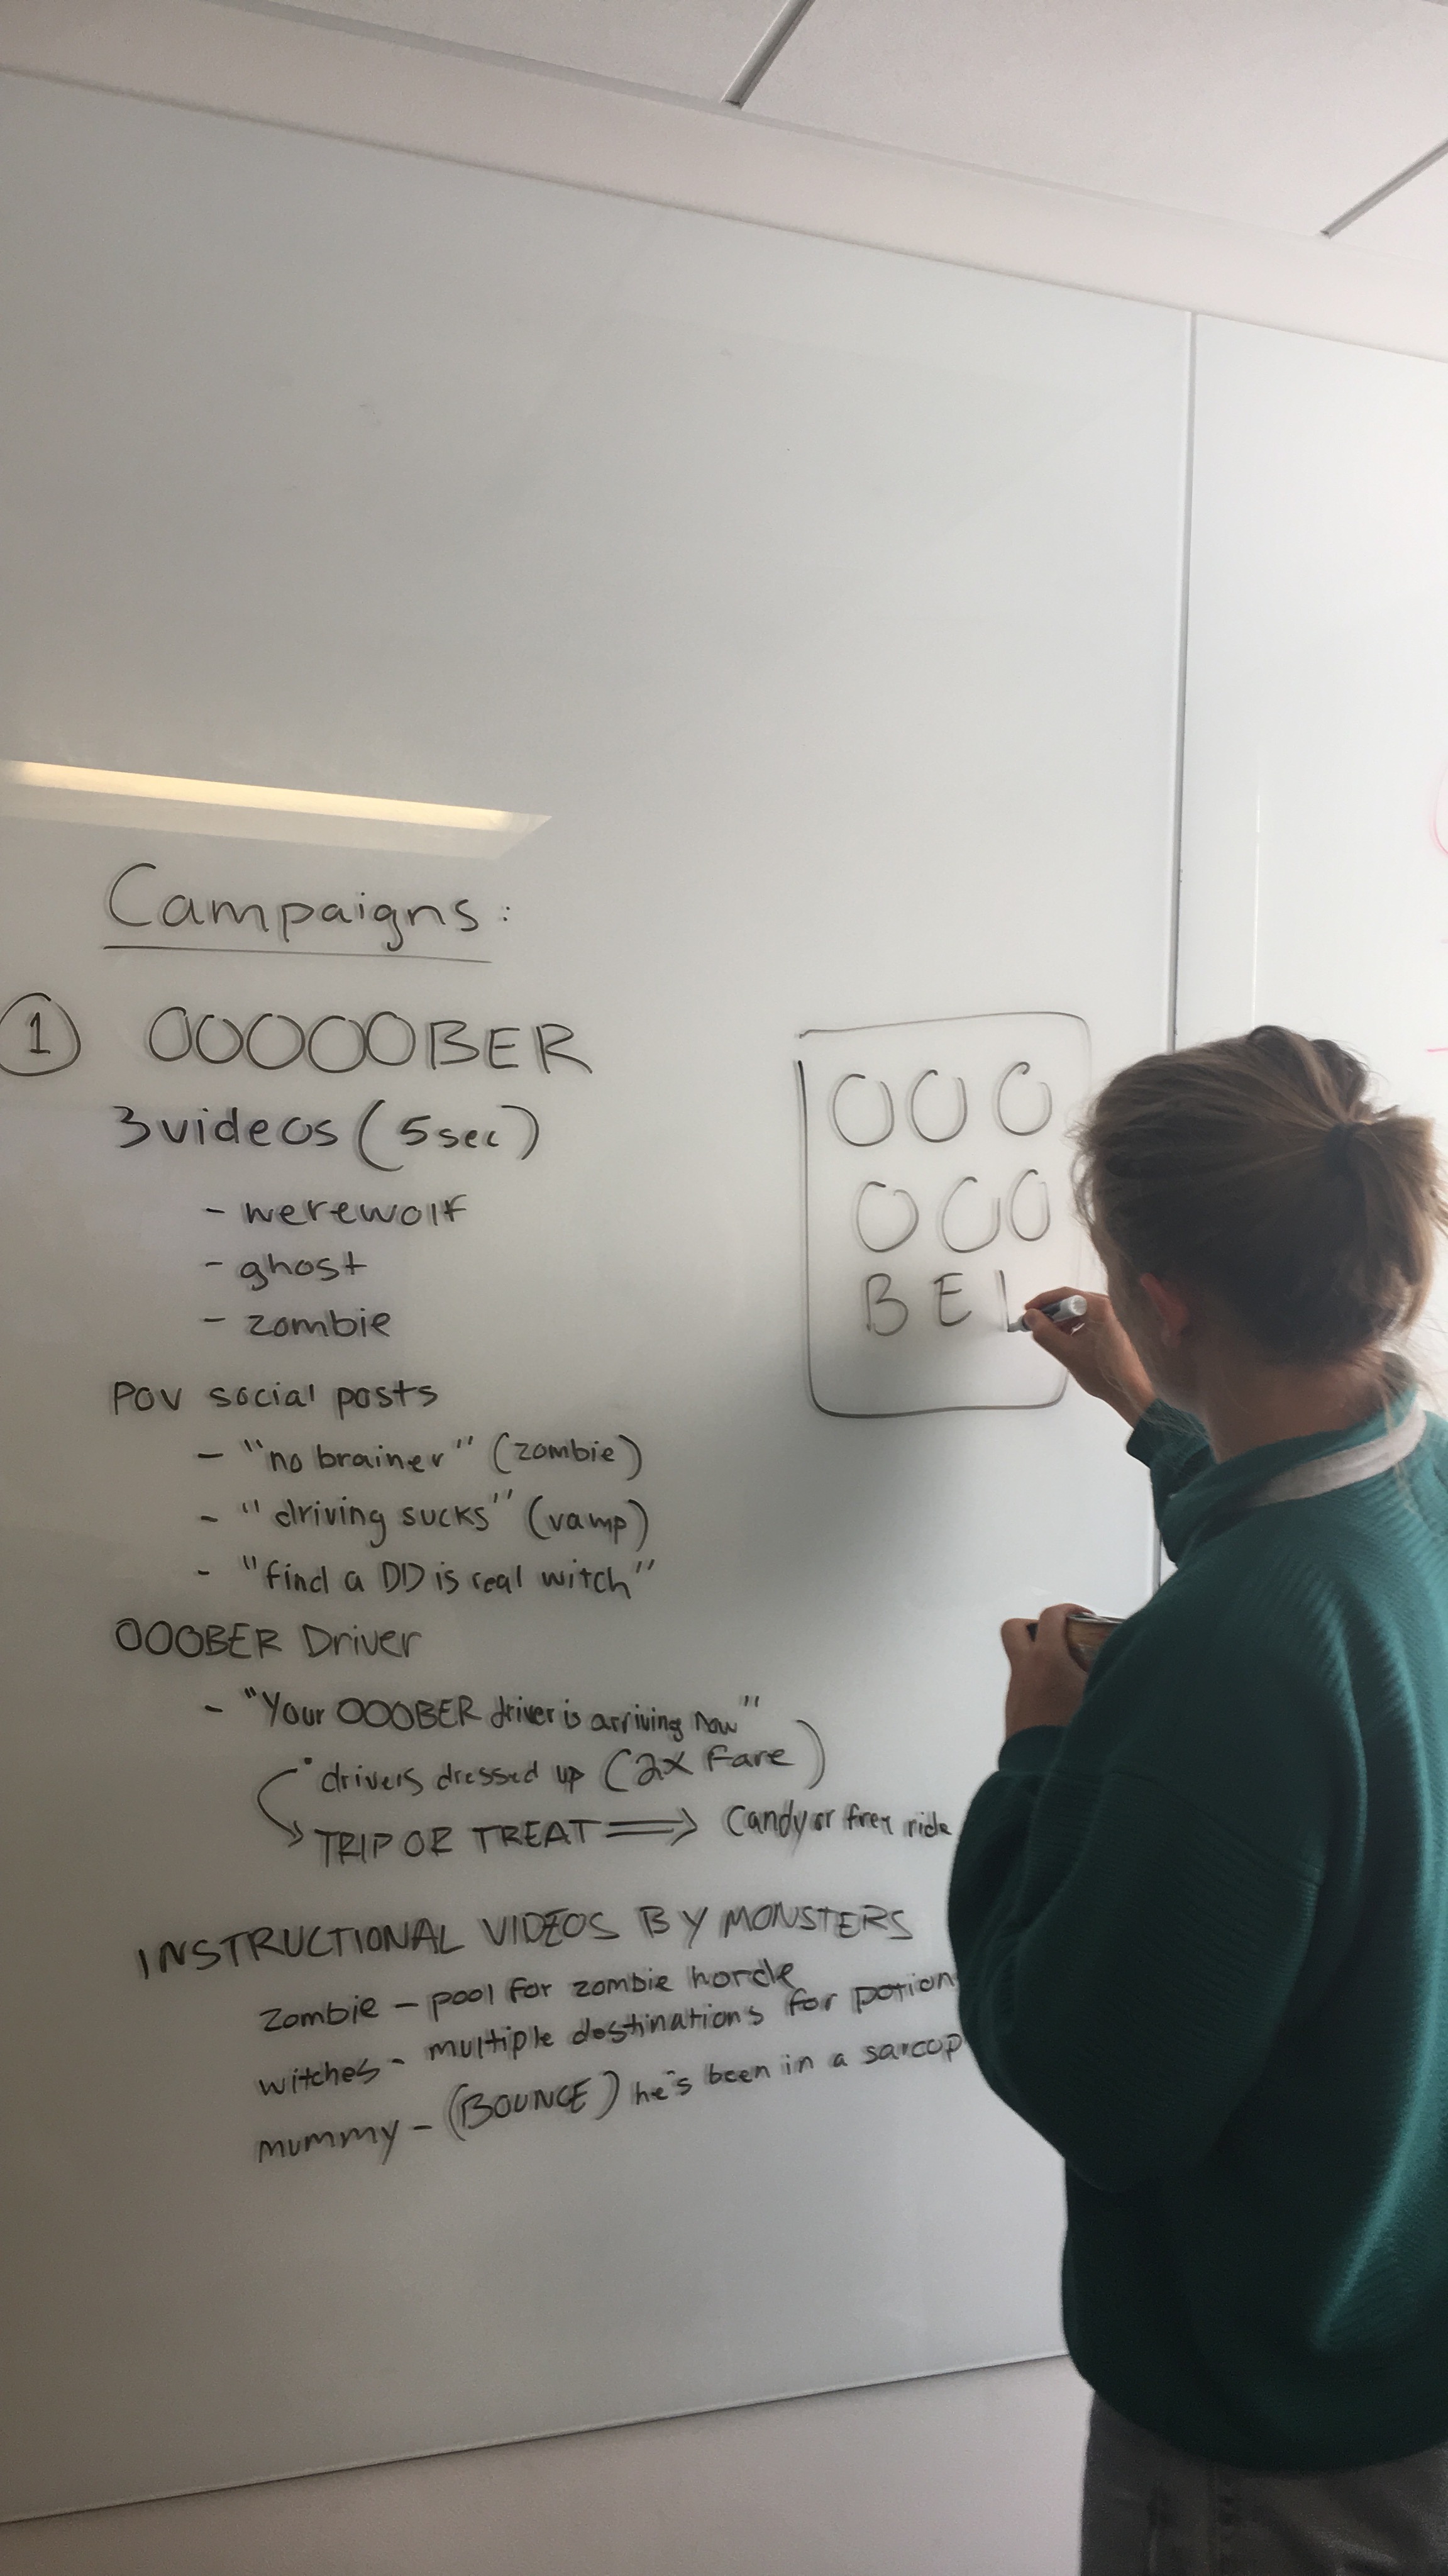 Campaigns:
1 OOOOOBER
3 videos (5 sec)
- werewolf
- ghost
- zombie
POV social posts
- "no brainer" (zombie)
- "driving sucks" (vamp)
- "find a DD is real witch"
OOOBER Driver
- "Your OOOBER driver is arriving now"
• drivers dressed up (2x Fare)
TRIP OR TREAT ⇒ Candy or free ride
INSTRUCTIONAL VIDEOS BY MONSTERS
zombie - pool for zombie horde
witches - multiple destinations for potion
mummy - (BOUNCE) he's been in a sarcop
OOO
OOO
BE